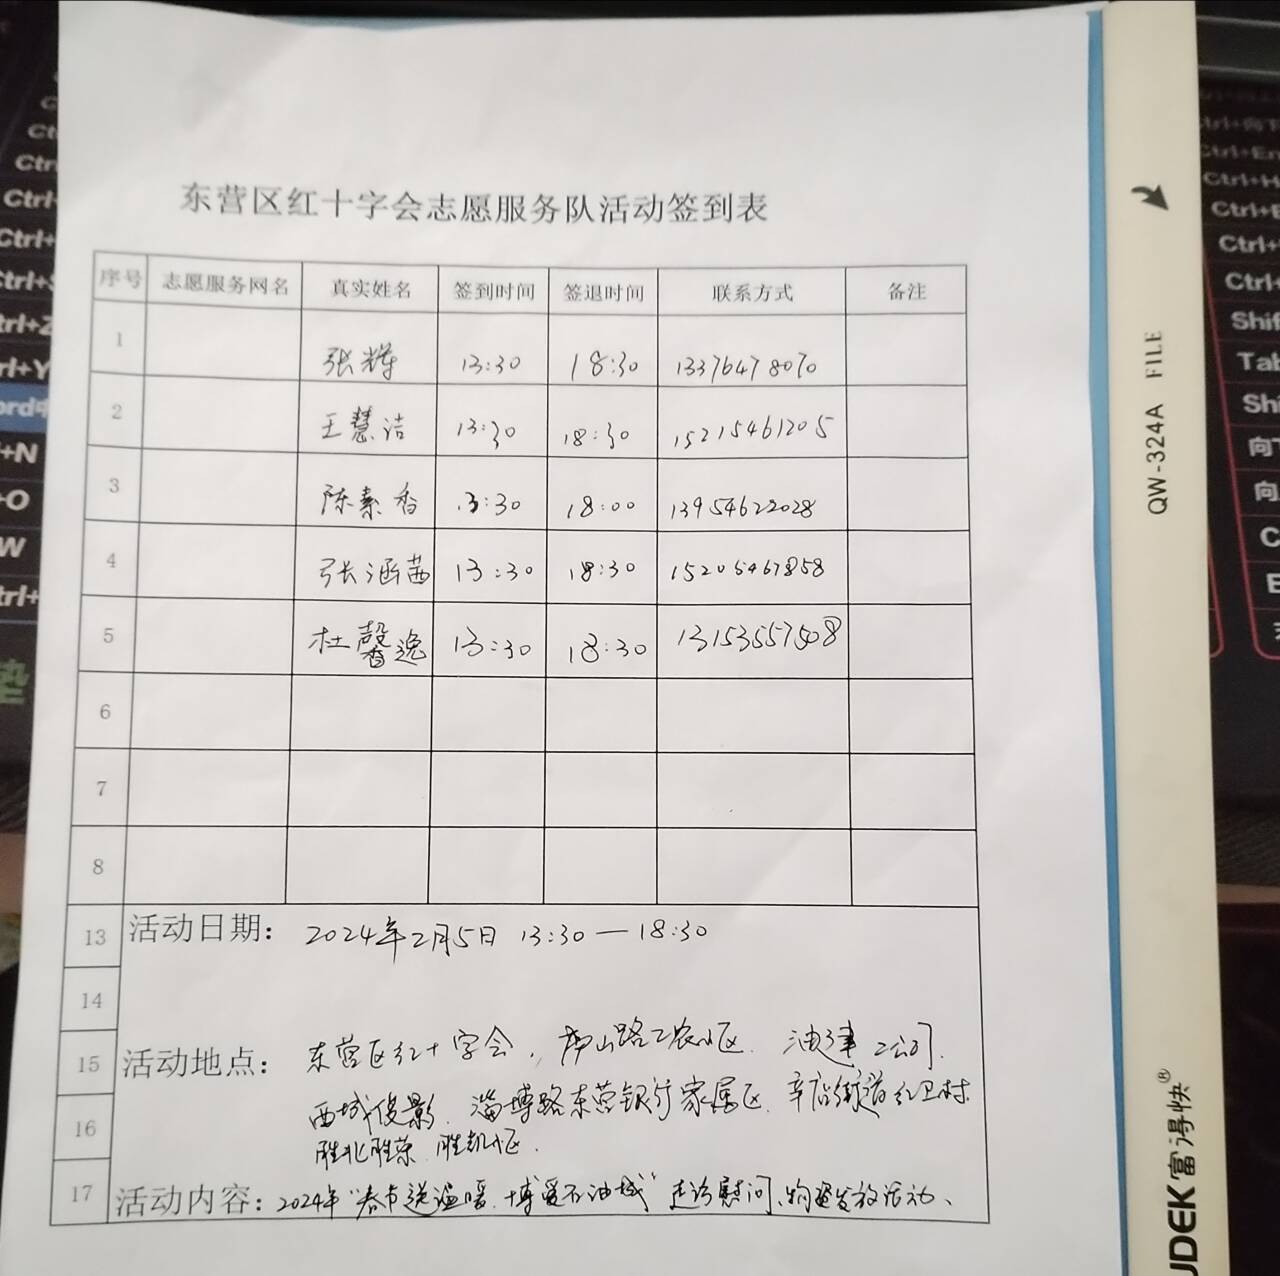 东营区红十字会志愿服务队活动签到表
序号 志愿服务网名 真实姓名 签到时间 签退时间 联系方式 备注
1 张辉 13:30 18:30 13376478070
2 王慧洁 13:30 18:30 15215461205
3 陈素香 13:30 18:00 13954622028
4 张涵茜 13:30 18:30 15205467858
5 杜馨逸 13:30 18:30 13153557508
6
7
8
13 活动日期: 2024年2月5日 13:30—18:30
14
15 活动地点: 东营区红十字会, 庐山路工农小区. 油建二公司.
16 西城俊影. 淄博路东营银行家属区. 辛店街道红卫村.
胜北胜荣. 胜凯小区.
17 活动内容: 2024年“春节送温暖.博爱在油城”走访慰问、物资发放活动、
QW-324A FILE
富得快®
Ctrl+Z
Ctrl+Y
+N
+O
Shif
Tab